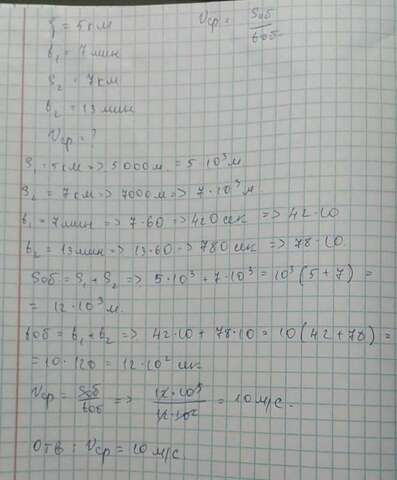 S₁ = 5 км Vср = Sоб / tоб
t₁ = 7 мин
S₂ = 7 км
t₂ = 13 мин
Vср = ?
S₁ = 5 км => 5000 м. = 5 · 10³ м
S₂ = 7 км => 7000 м => 7 · 10³ м.
t₁ = 7 мин => 7 · 60 => 420 сек => 42 · 10
t₂ = 13 мин => 13 · 60 => 780 сек => 78 · 10
Sоб = S₁ + S₂ => 5 · 10³ + 7 · 10³ = 10³ (5 + 7) =
= 12 · 10³ м.
tоб = t₁ + t₂ => 42 · 10 + 78 · 10 = 10 (42 + 78) =
= 10 · 120 = 12 · 10² сек
Vср = Sоб / tоб => 12 · 10³ / 12 · 10² = 10 м/с.
Отв : Vср = 10 м/с